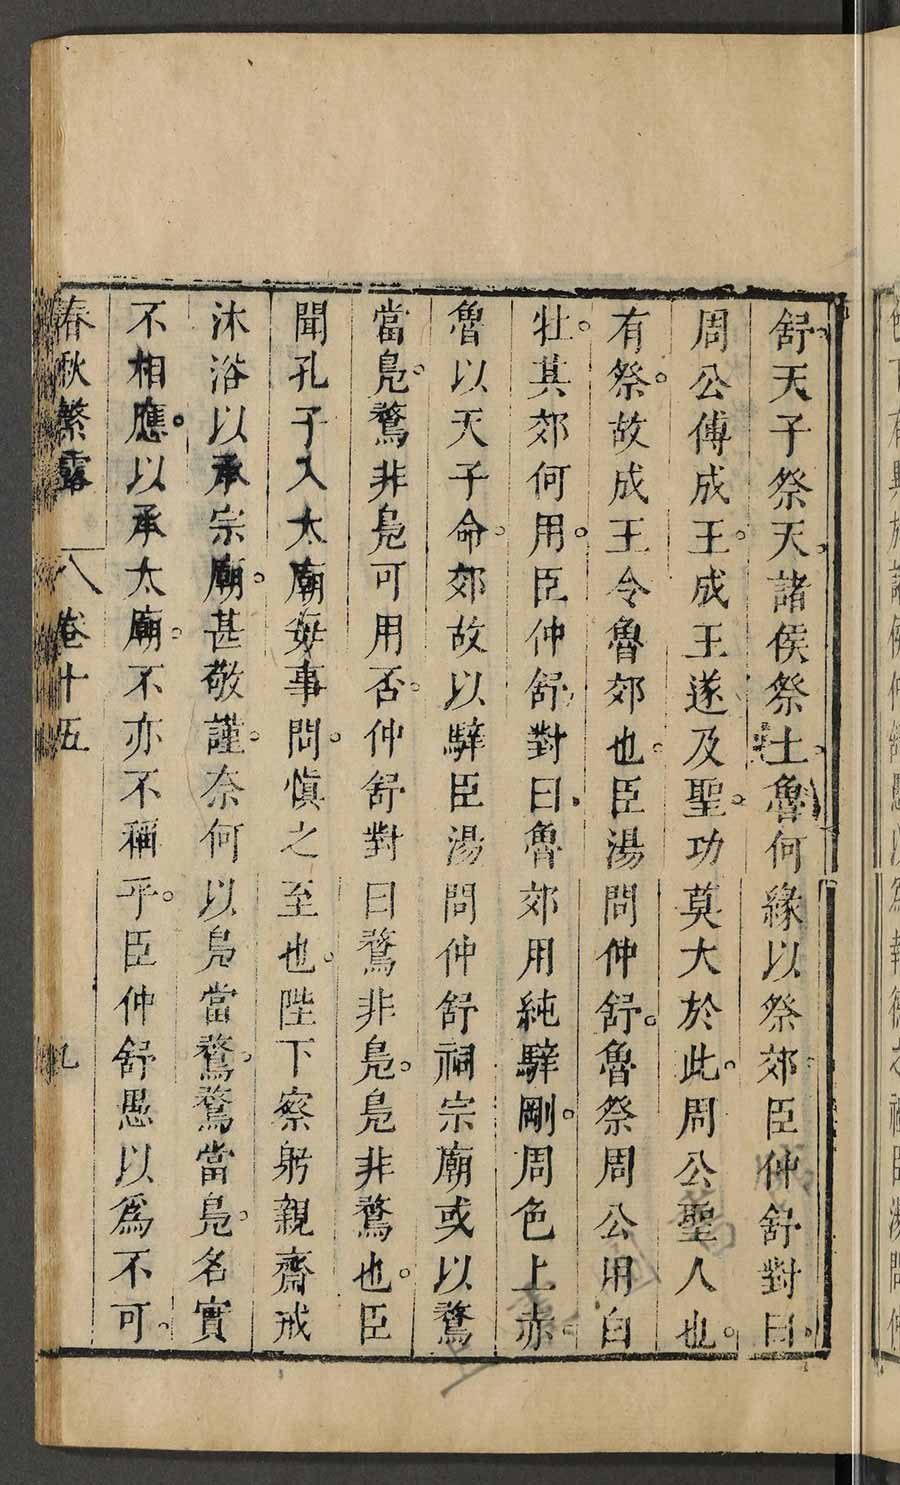 舒天子祭天諸侯祭土魯何緣以祭郊臣仲舒對曰
周公傅成王成王遂及聖功莫大於此周公聖人也
有祭故成王令魯郊也臣湯問仲舒魯祭周公用白
牡其郊何用臣仲舒對曰魯郊用純騂剛周色上赤
魯以天子命郊故以騂臣湯問仲舒祠宗廟或以鶩
當鳧鶩非鳧可用否仲舒對曰鶩非鳧鳧非鶩也臣
聞孔子入太廟每事問慎之至也陛下察躬親齋戒
沐浴以承宗廟甚敬謹奈何以鳧當鶩鶩當鳧名實
不相應以承太廟不亦不稱乎臣仲舒愚以爲不可
春秋繁露 卷十五 九